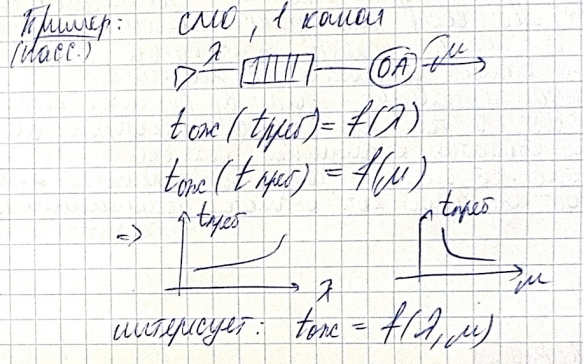 Пример: СМО, 1 канал
(пасс.)
λ ОА μ
tож (tпреб) = f(λ)
tож (tпреб) = f(μ)
=> tпреб λ tпреб μ
интересует: tож = f(λ, μ)